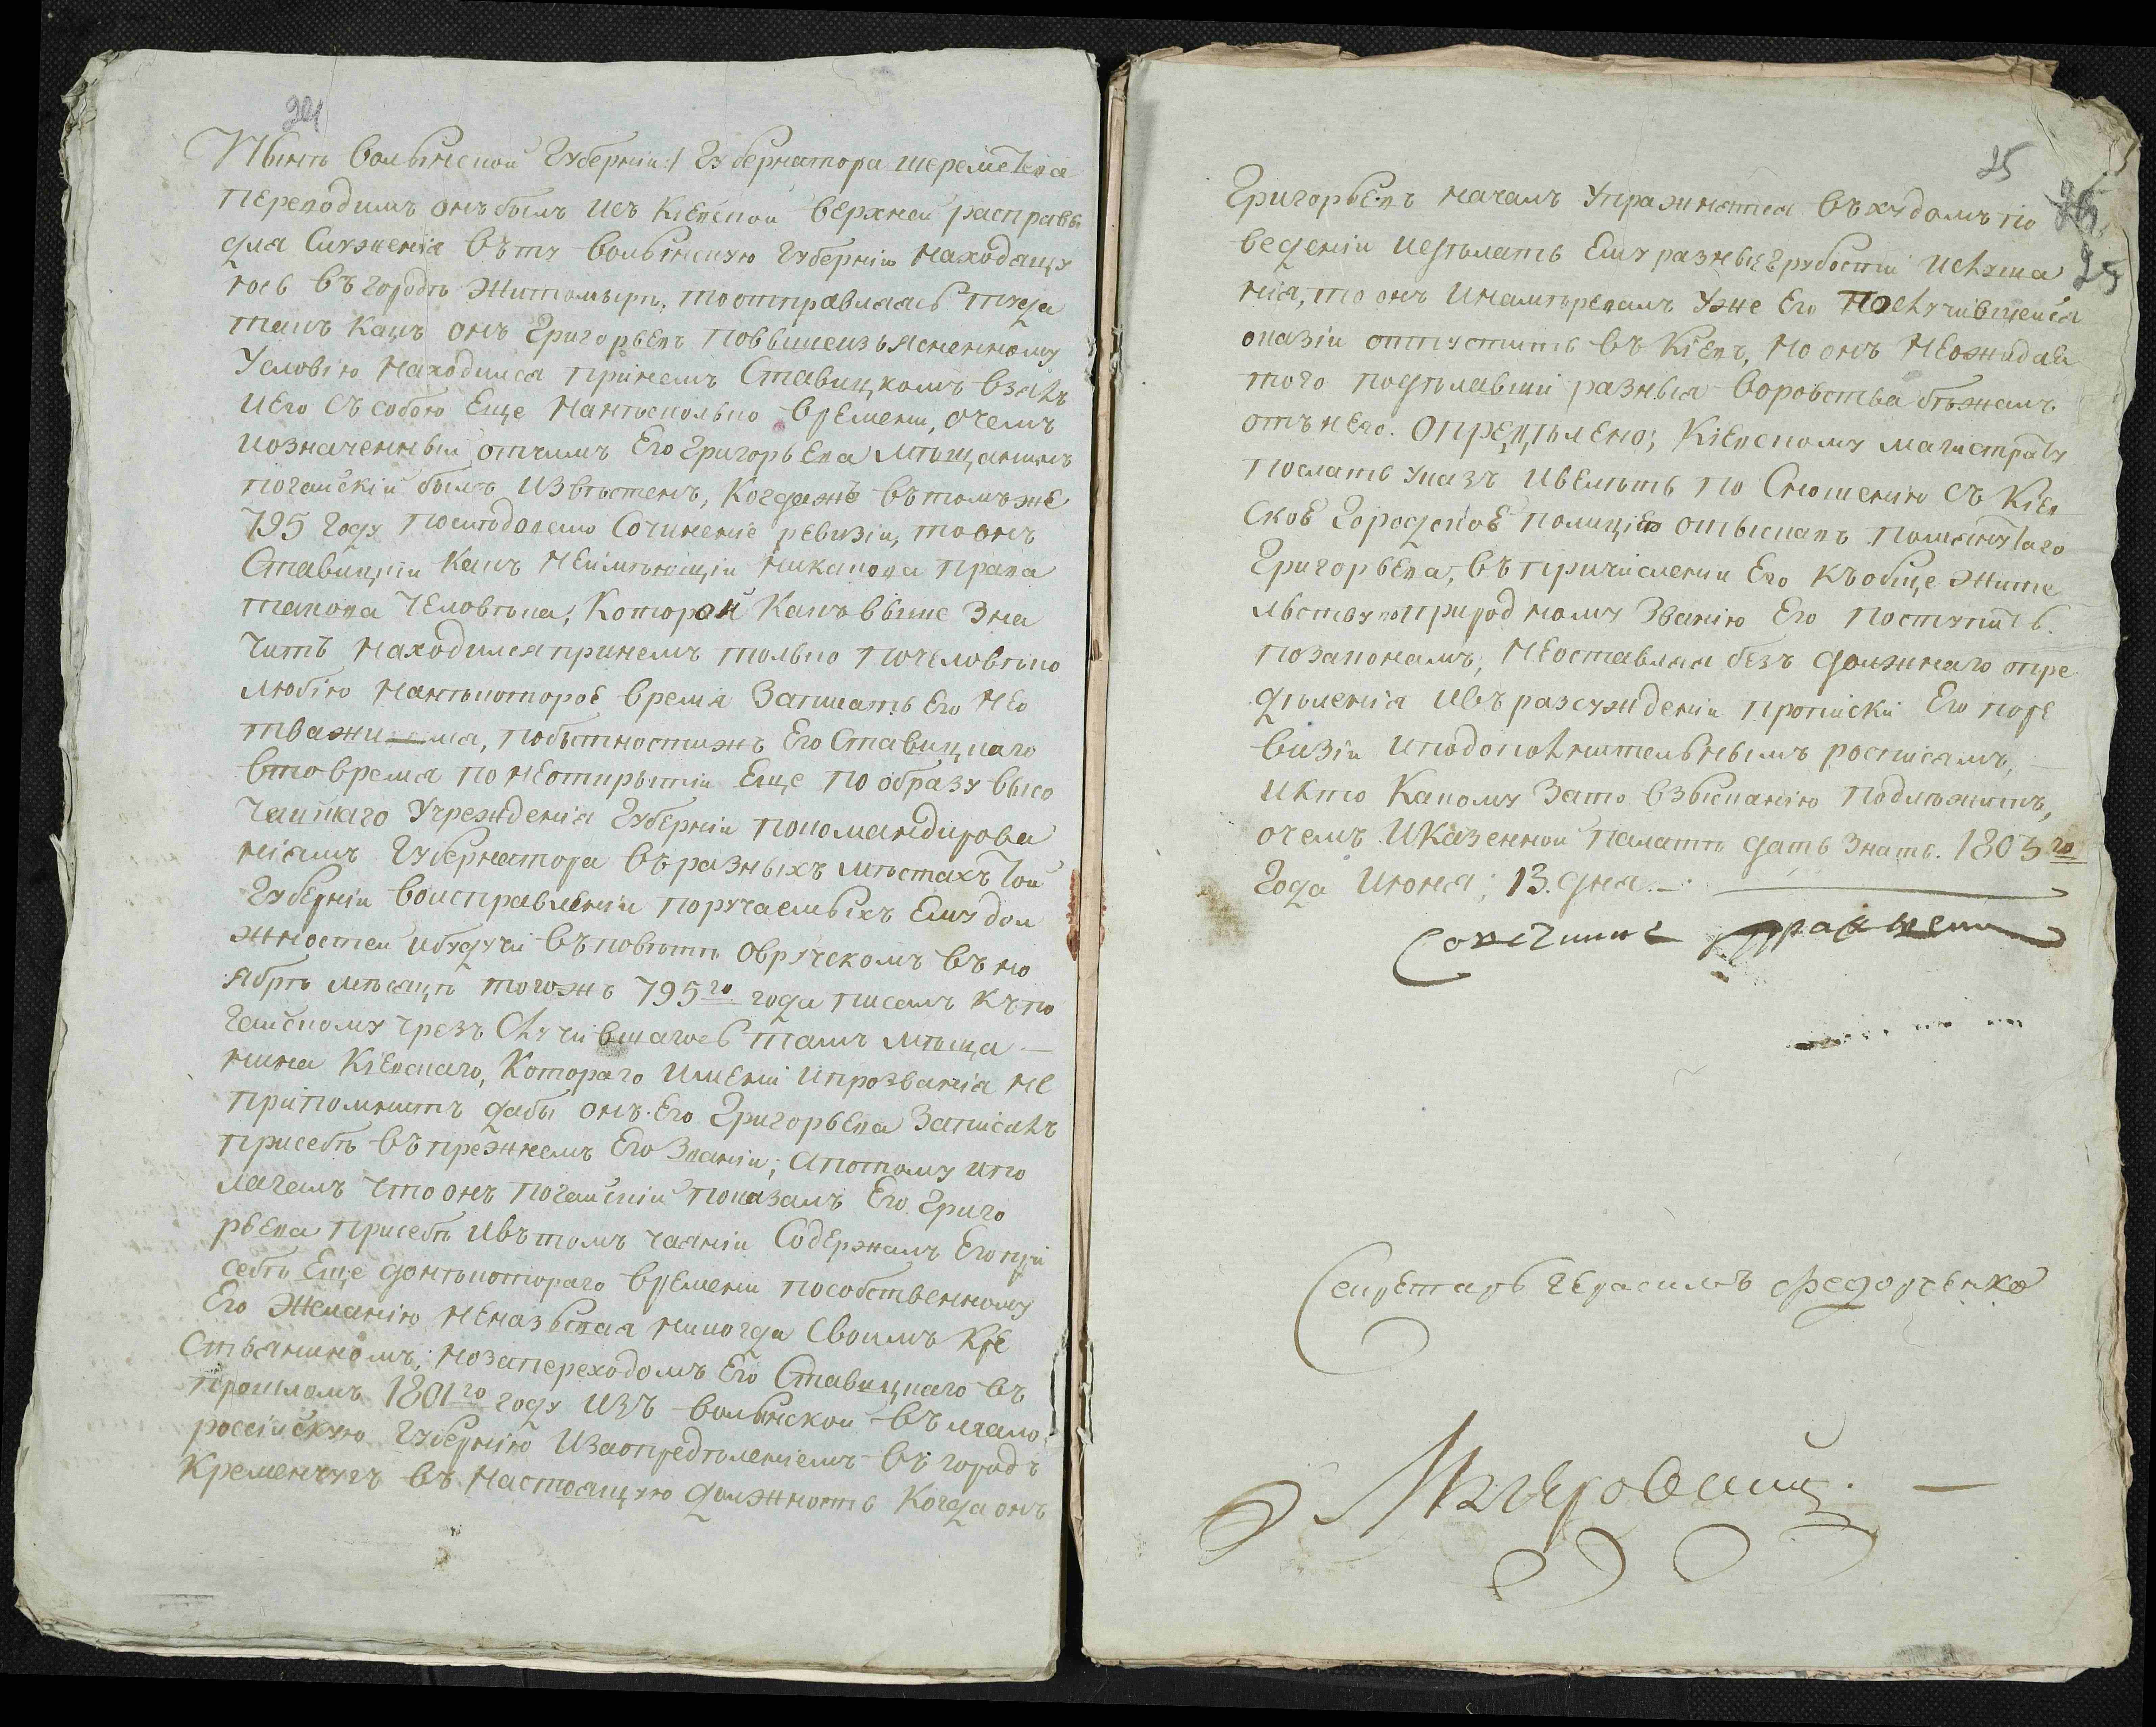 204
Нынѣ волынской губерніи:/ губернатора шереметева
переводимъ онъ былъ изъ Кіевской верхней расправы
для служенія въ ту волынскую губернію находящу
юсь въ городѣ Житомырѣ, то отправляясь туда
такъ какъ онъ Григорьевъ повышеизъясненному
условію находился принемъ Ставицкомъ взялъ
иего съ собою еще нанѣсколько времени, очемъ
иозначенный отчимъ его Григорьева мѣщанинъ
почайскій былъ извѣстенъ, Когдажъ въ томъ же
795 году послѣдовало Сочиненіе ревизіи, то онъ
Ставицкій какъ неимѣющій никакова права
такова человѣка, Которой какъ выше зна
читъ находился принемъ только почеловѣко
любію нанѣкоторое время записать его нео
тважился, побытностижъ его Ставицкаго
вто время по неоткрытіи еще по образу высо
чайшаго учрежденія губерніи покомандирова
ніямъ губернатора въ разныхъ мѣстахъ той
губерніи воисправленіи поручаемыхъ ему дол
жностей ибудучи въ повѣтѣ овручскомъ въ но
ябрѣ мѣсяцѣ тогожъ 795го года писалъ къ по
чайскому чрезъ случившагось тамъ мѣща
нина Кіевскаго, Котораго имени ипрозванія не
припомнитъ дабы онъ его Григорьева записалъ
присебѣ въ прежнемъ его званіи, апотому ипо
лагалъ что онъ почайскій показалъ его Григо
рьева присебѣ ивъ томъ чаяніи Содержалъ его при
себѣ еще донѣкотораго времени пособственному
его желанію неназывая никогда своимъ кре
стьяниномъ; нозапереходомъ его Ставицкаго въ
прошломъ 1801го году изъ волынской въ мало
россійскую губернію изаопредѣленіемъ въ городъ
Кременчугъ въ настоящую должность когда онъ
25
25
Григорьевъ началъ упражнятся въ худомъ по
веденіи идѣлать ему разные грубости ислуша
нія, то онъ инамѣревалъ уже его послучившейся
оказіи отпустить въ Кіевъ, но онъ неожидая
того подѣлавши разныя воровства бѣжалъ
отъ него. Опредѣлено; Кіевскому магистрату
послать указъ ивелѣть по сношенію съ Кіев
скоѣ городскоѣ полиціею отыскавъ помянутаго
Григорьева, въ причисленіи его къ обще жите
льству поприродному званію его поступить
позаконамъ, неоставляя безъ должнаго опре
дѣленія ивъ разсужденіи прописки его поре
визіи иподополнительнымъ росписямъ,
икто какому зато взысканію подлежитъ,
очемъ иказенной палатѣ дать знать. 1803го
года Июня; 13. дня.
Совѣтникъ
Секретарь Герасимъ Федоренко